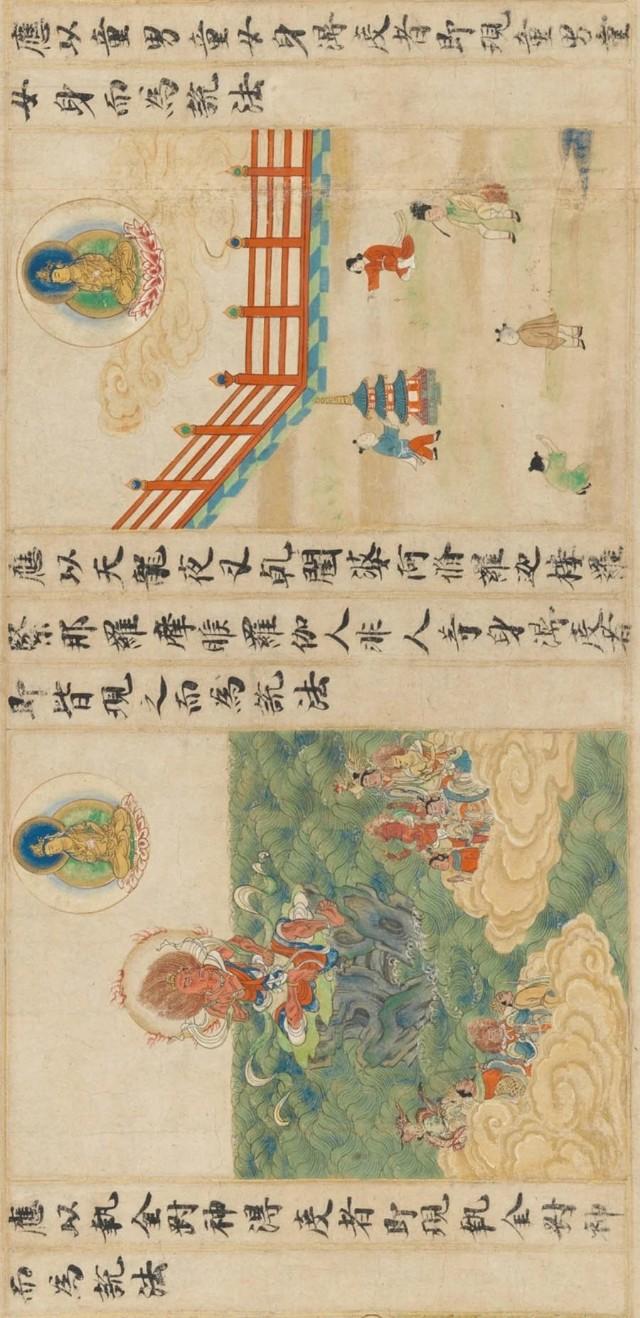 應以童男童女身得度者即現童男童
女身而為說法
應以天龍夜叉乹闥婆阿脩羅迦樓羅
緊那羅摩睺羅伽人非人等身得度者
即皆現之而為說法
應以執金剛神得度者即現執金剛神
而為說法